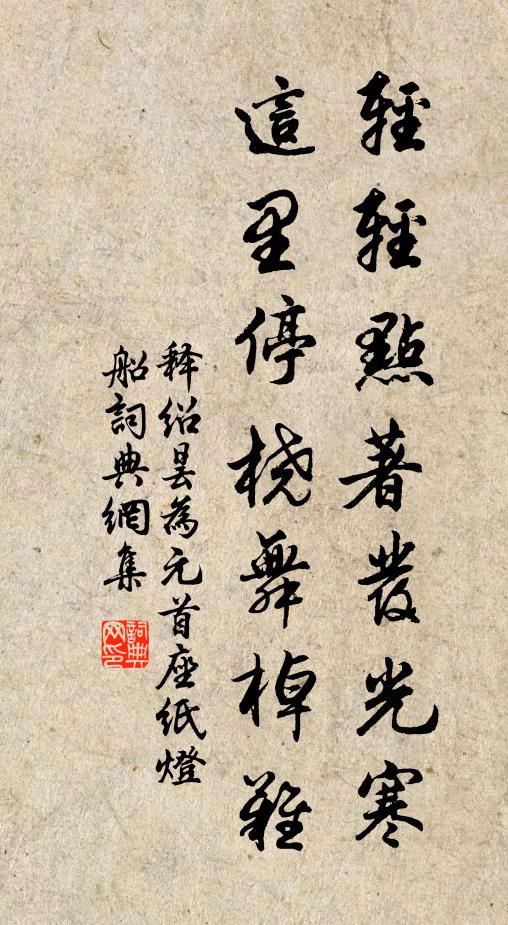 輕輕點著發光寒
這里停桡舞棹難
释紹昙為元首座紙燈
船詞典網集
詞典
网印